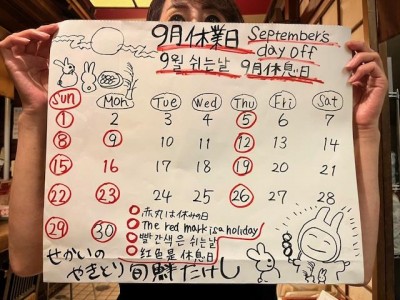 9月休業日 September's
day off
9월 쉬는날 9月休息日
Sun Mon Tue Wed Thu Fri Sat
1 2 3 4 5 6 7
8 9 10 11 12 13 14
15 16 17 18 19 20 21
22 23 24 25 26 27 28
29 30
赤丸は休みの日
The red mark is a holiday
빨간색은 쉬는날
紅色是 休息日
せかいの
やきとり旬鮮たけし